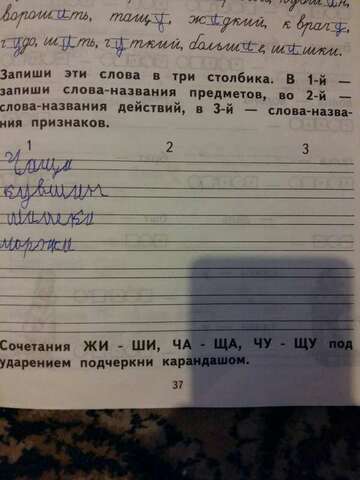 ворошить, тащу, жидкий, к врачу,
чудо, шить, чуткий, большие, шишки.
Запиши эти слова в три столбика. В 1-й —
запиши слова-названия предметов, во 2-й —
слова-названия действий, в 3-й — слова-назва-
ния признаков.
1 2 3
Чаща
кувшин
моржи
Сочетания ЖИ – ШИ, ЧА – ЩА, ЧУ – ЩУ под
ударением подчеркни карандашом.
37